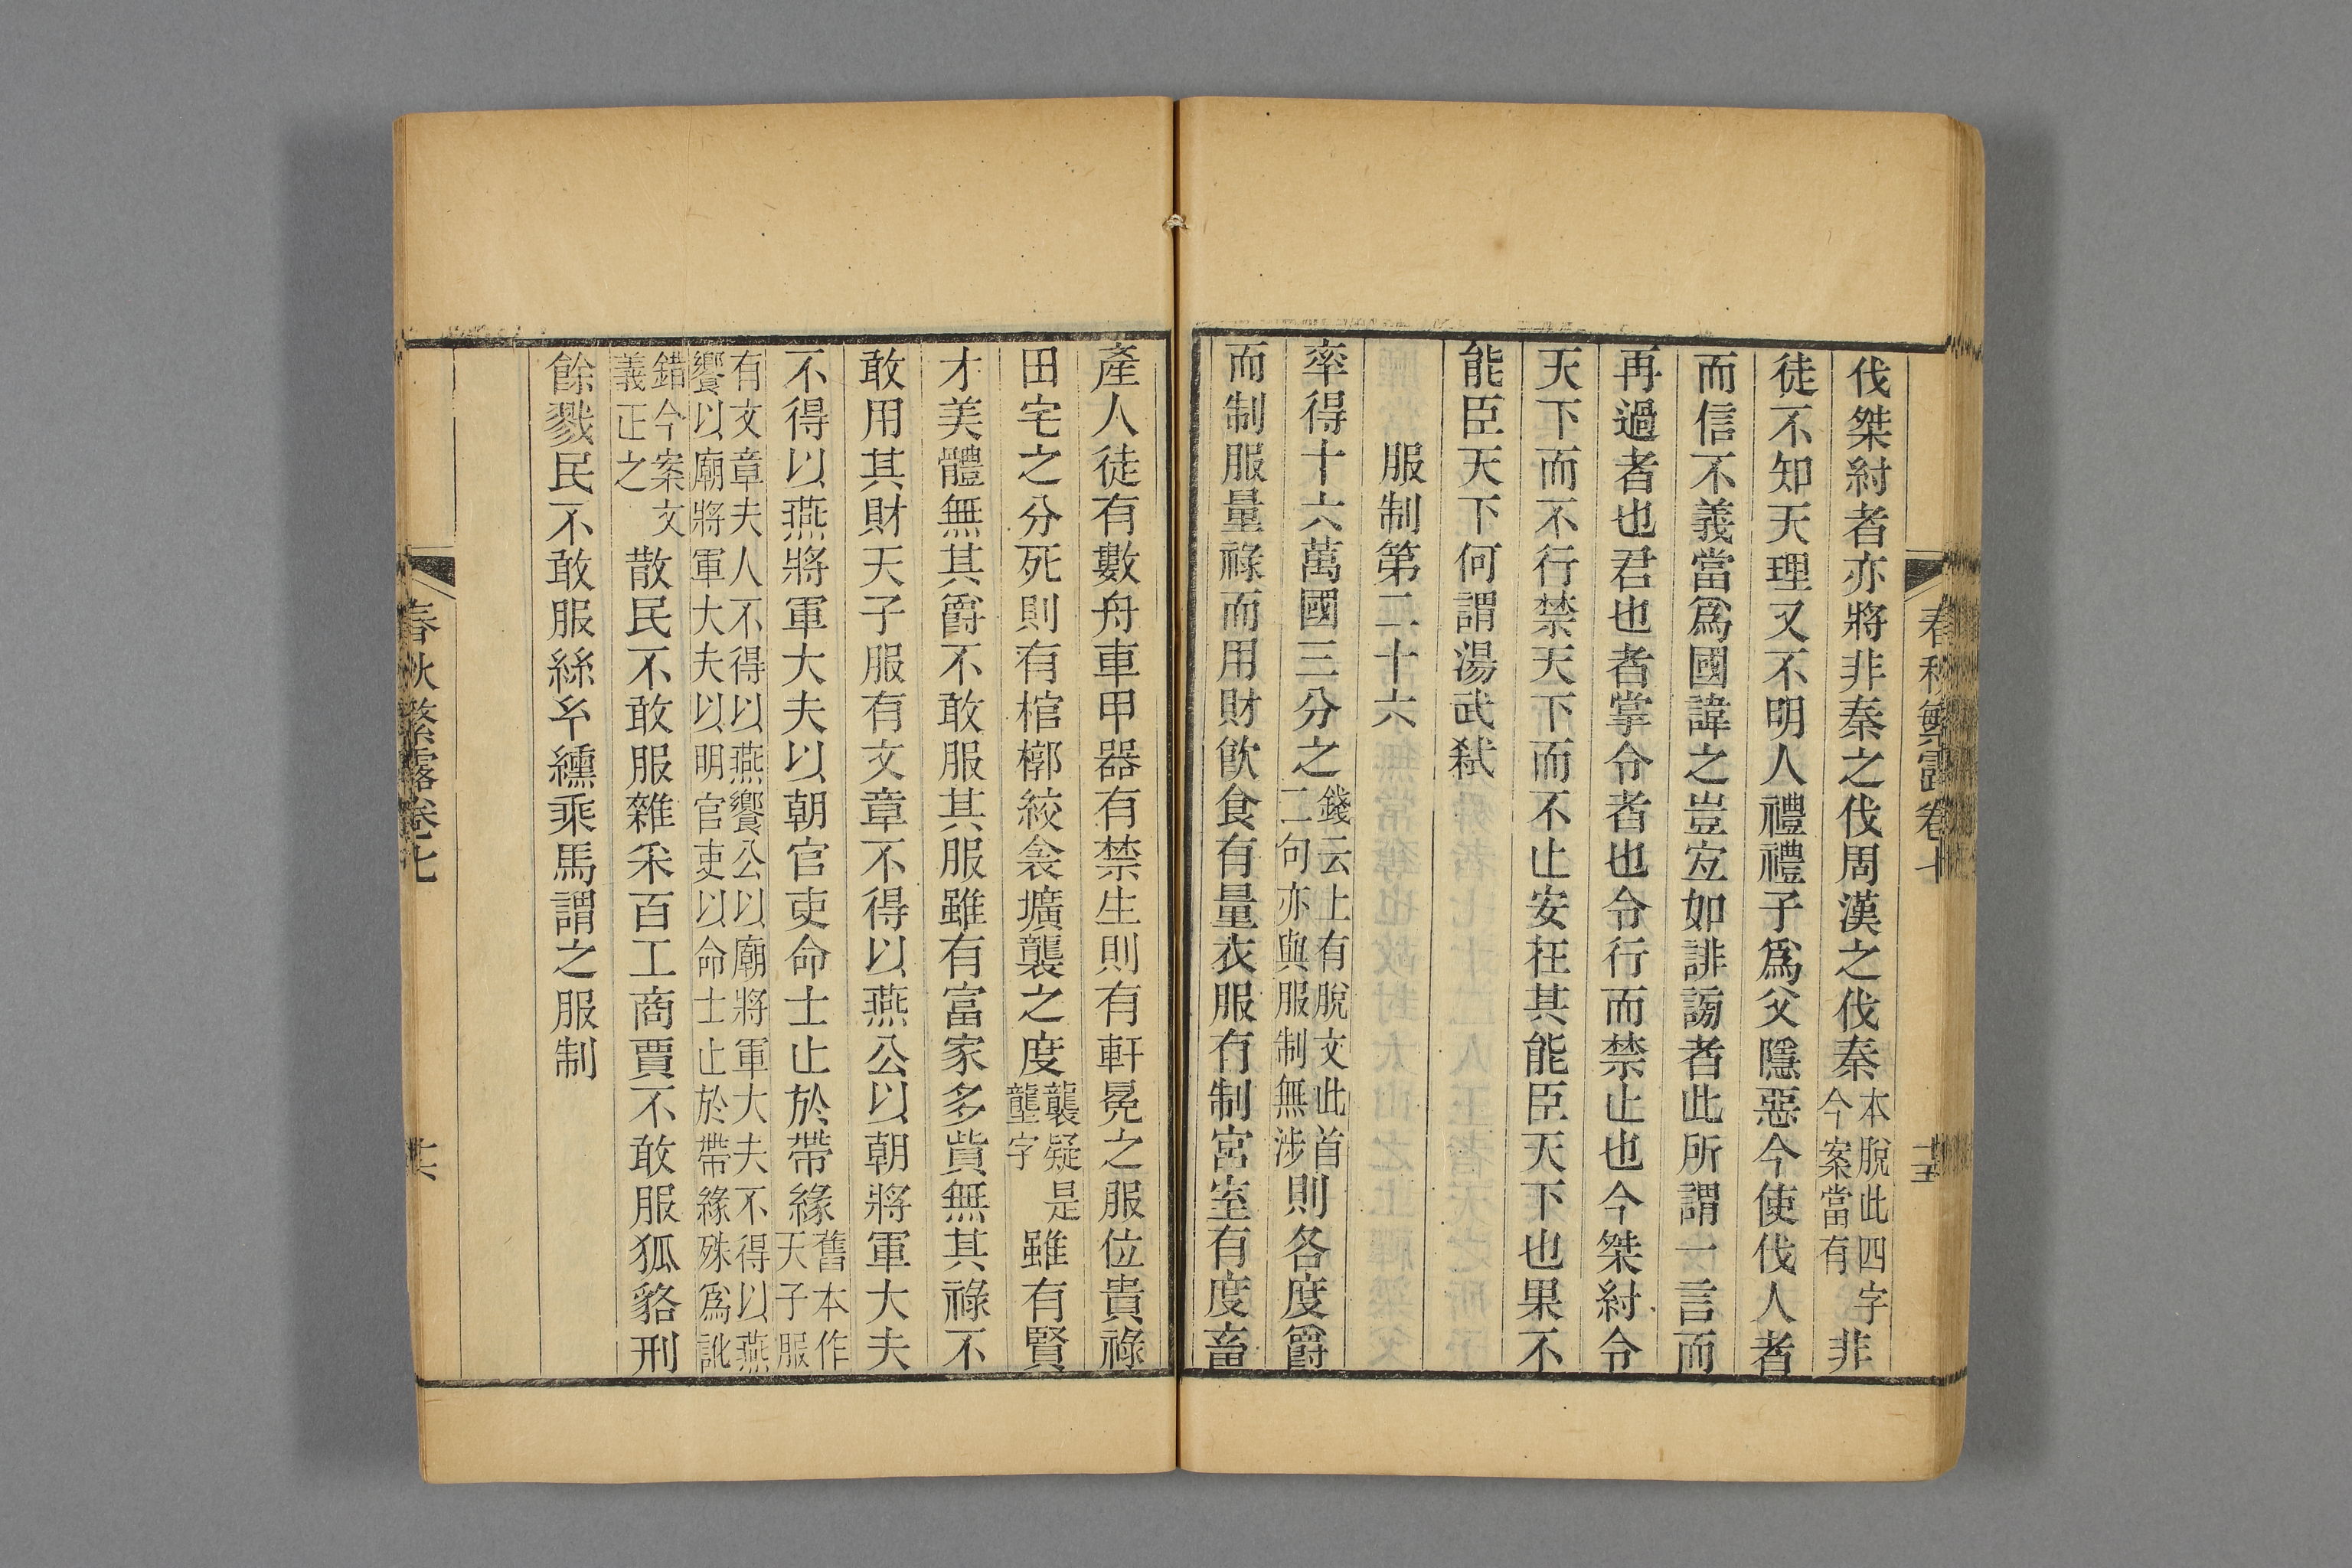 春秋繁露卷七
十五
伐桀紂者亦將非秦之伐周漢之伐秦本脫此四字今案當有非
徒不知天理又不明人禮禮子爲父隱惡今使伐人者
而信不義當爲國諱之豈宐如誹謗者此所謂一言而
再過者也君也者掌令者也令行而禁止也今桀紂令
天下而不行禁天下而不止安在其能臣天下也果不
能臣天下何謂湯武弒
服制第二十六
率得十六萬國三分之錢云上有脫文此首二句亦與服制無涉則各度爵
而制服量祿而用財飲食有量衣服有制宮室有度畜
產人徒有數舟車甲器有禁生則有軒冕之服位貴祿
田宅之分死則有棺槨絞衾壙襲之度襲疑是壟字雖有賢
才美體無其爵不敢服其服雖有富家多貲無其祿不
敢用其財天子服有文章不得以燕公以朝將軍大夫
不得以燕將軍大夫以朝官吏命士止於帶緣舊本作天子服
有文章夫人不得以燕饗公以廟將軍大夫不得以燕饗以廟將軍大夫以明官吏以命士止於帶緣殊爲訛
錯今案文義正之散民不敢服雜采百工商賈不敢服狐貉刑
餘戮民不敢服絲㐸纁乘馬謂之服制
春秋繁露卷七
十六